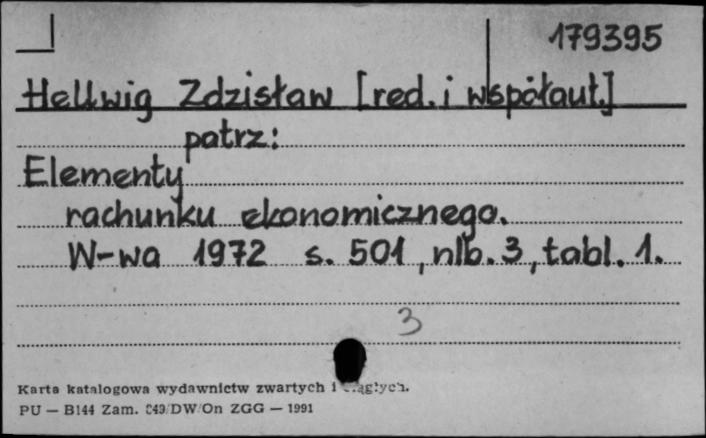 179395
Hellwig Zdzisław [red. i współaut.]
patrz:
Elementy
rachunku ekonomicznego.
W-wa 1972 s. 501, nlb. 3, tabl. 1.
3
Karta katalogowa wydawnictw zwartych i
PU — B144 Zam. /DW/On ZGG — 1991